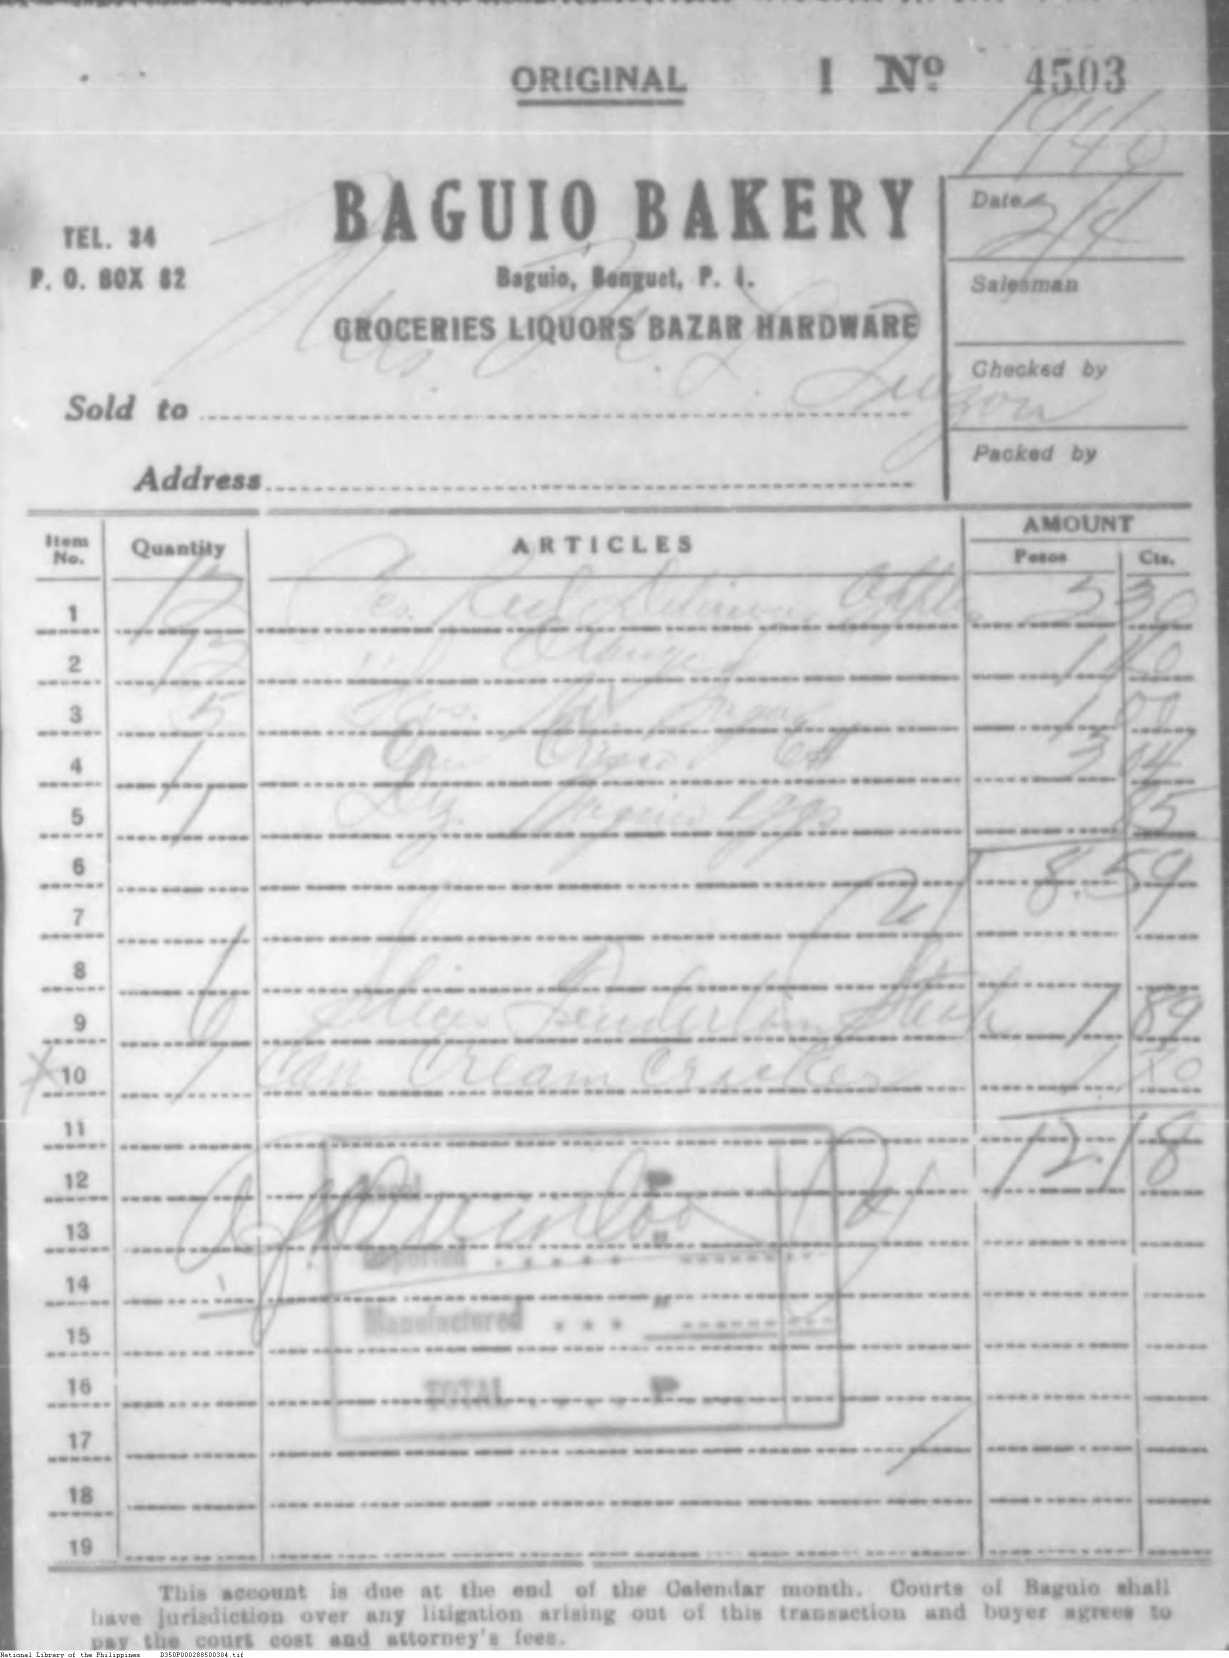 ORIGINAL 1 No 4503
1940
BAGUIO BAKERY
TEL. 34
P. O. BOX 82
Baguio, Benguet, P. I.
GROCERIES LIQUORS BAZAR HARDWARE
Date 2/4
Salesman
Checked by
Packed by
Mrs. L. Quezon
Sold to
Address
Item No. Quantity ARTICLES AMOUNT
Pesos Cts.
1 12 Pcs. Red Delicious Apple 2 30
2 12 Oranges 1 40
3 5 1 00
4 1 3 04
5 1 Dz. Baguio Eggs 85
6 8.59
7
8
9 6 Slices Tenderloin Steak 1 89
x 10 1 Can Cream Cracker 1 70
11 12.18
12
13
14
15
16
17
18
19
Local P
Imported "
Manufactured "
TOTAL P
This account is due at the end of the Calendar month. Courts of Baguio shall
have jurisdiction over any litigation arising out of this transaction and buyer agrees to
pay the court cost and attorney's fees.
National Library of the Philippines D350P000288500304.tif